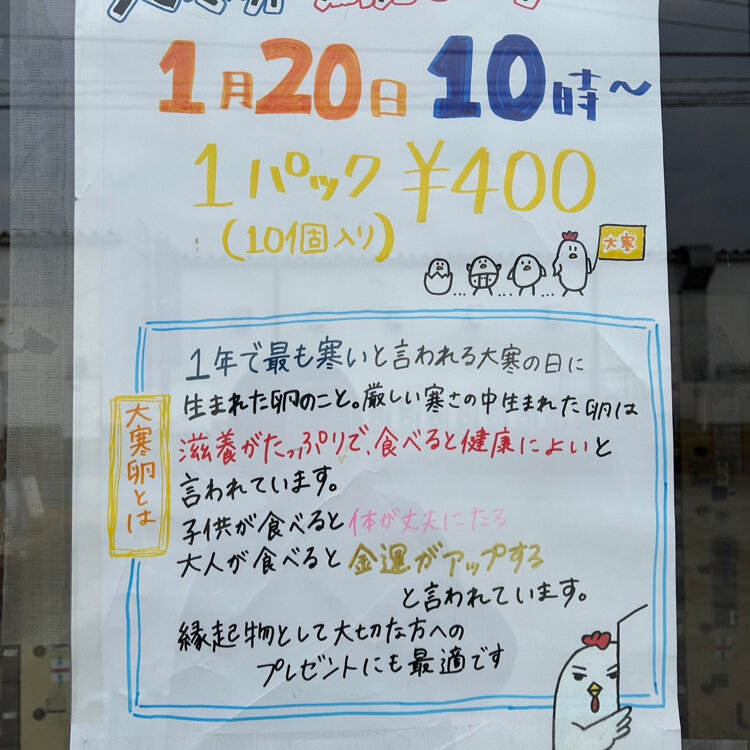 大寒卵
1月20日 10時～
1パック ¥400
(10個入り)
大寒
大寒卵とは
1年で最も寒いと言われる大寒の日に
生まれた卵のこと。厳しい寒さの中生まれた卵は
滋養がたっぷりで、食べると健康によいと
言われています。
子供が食べると体が丈夫になる
大人が食べると金運がアップする
と言われています。
縁起物として大切な方への
プレゼントにも最適です